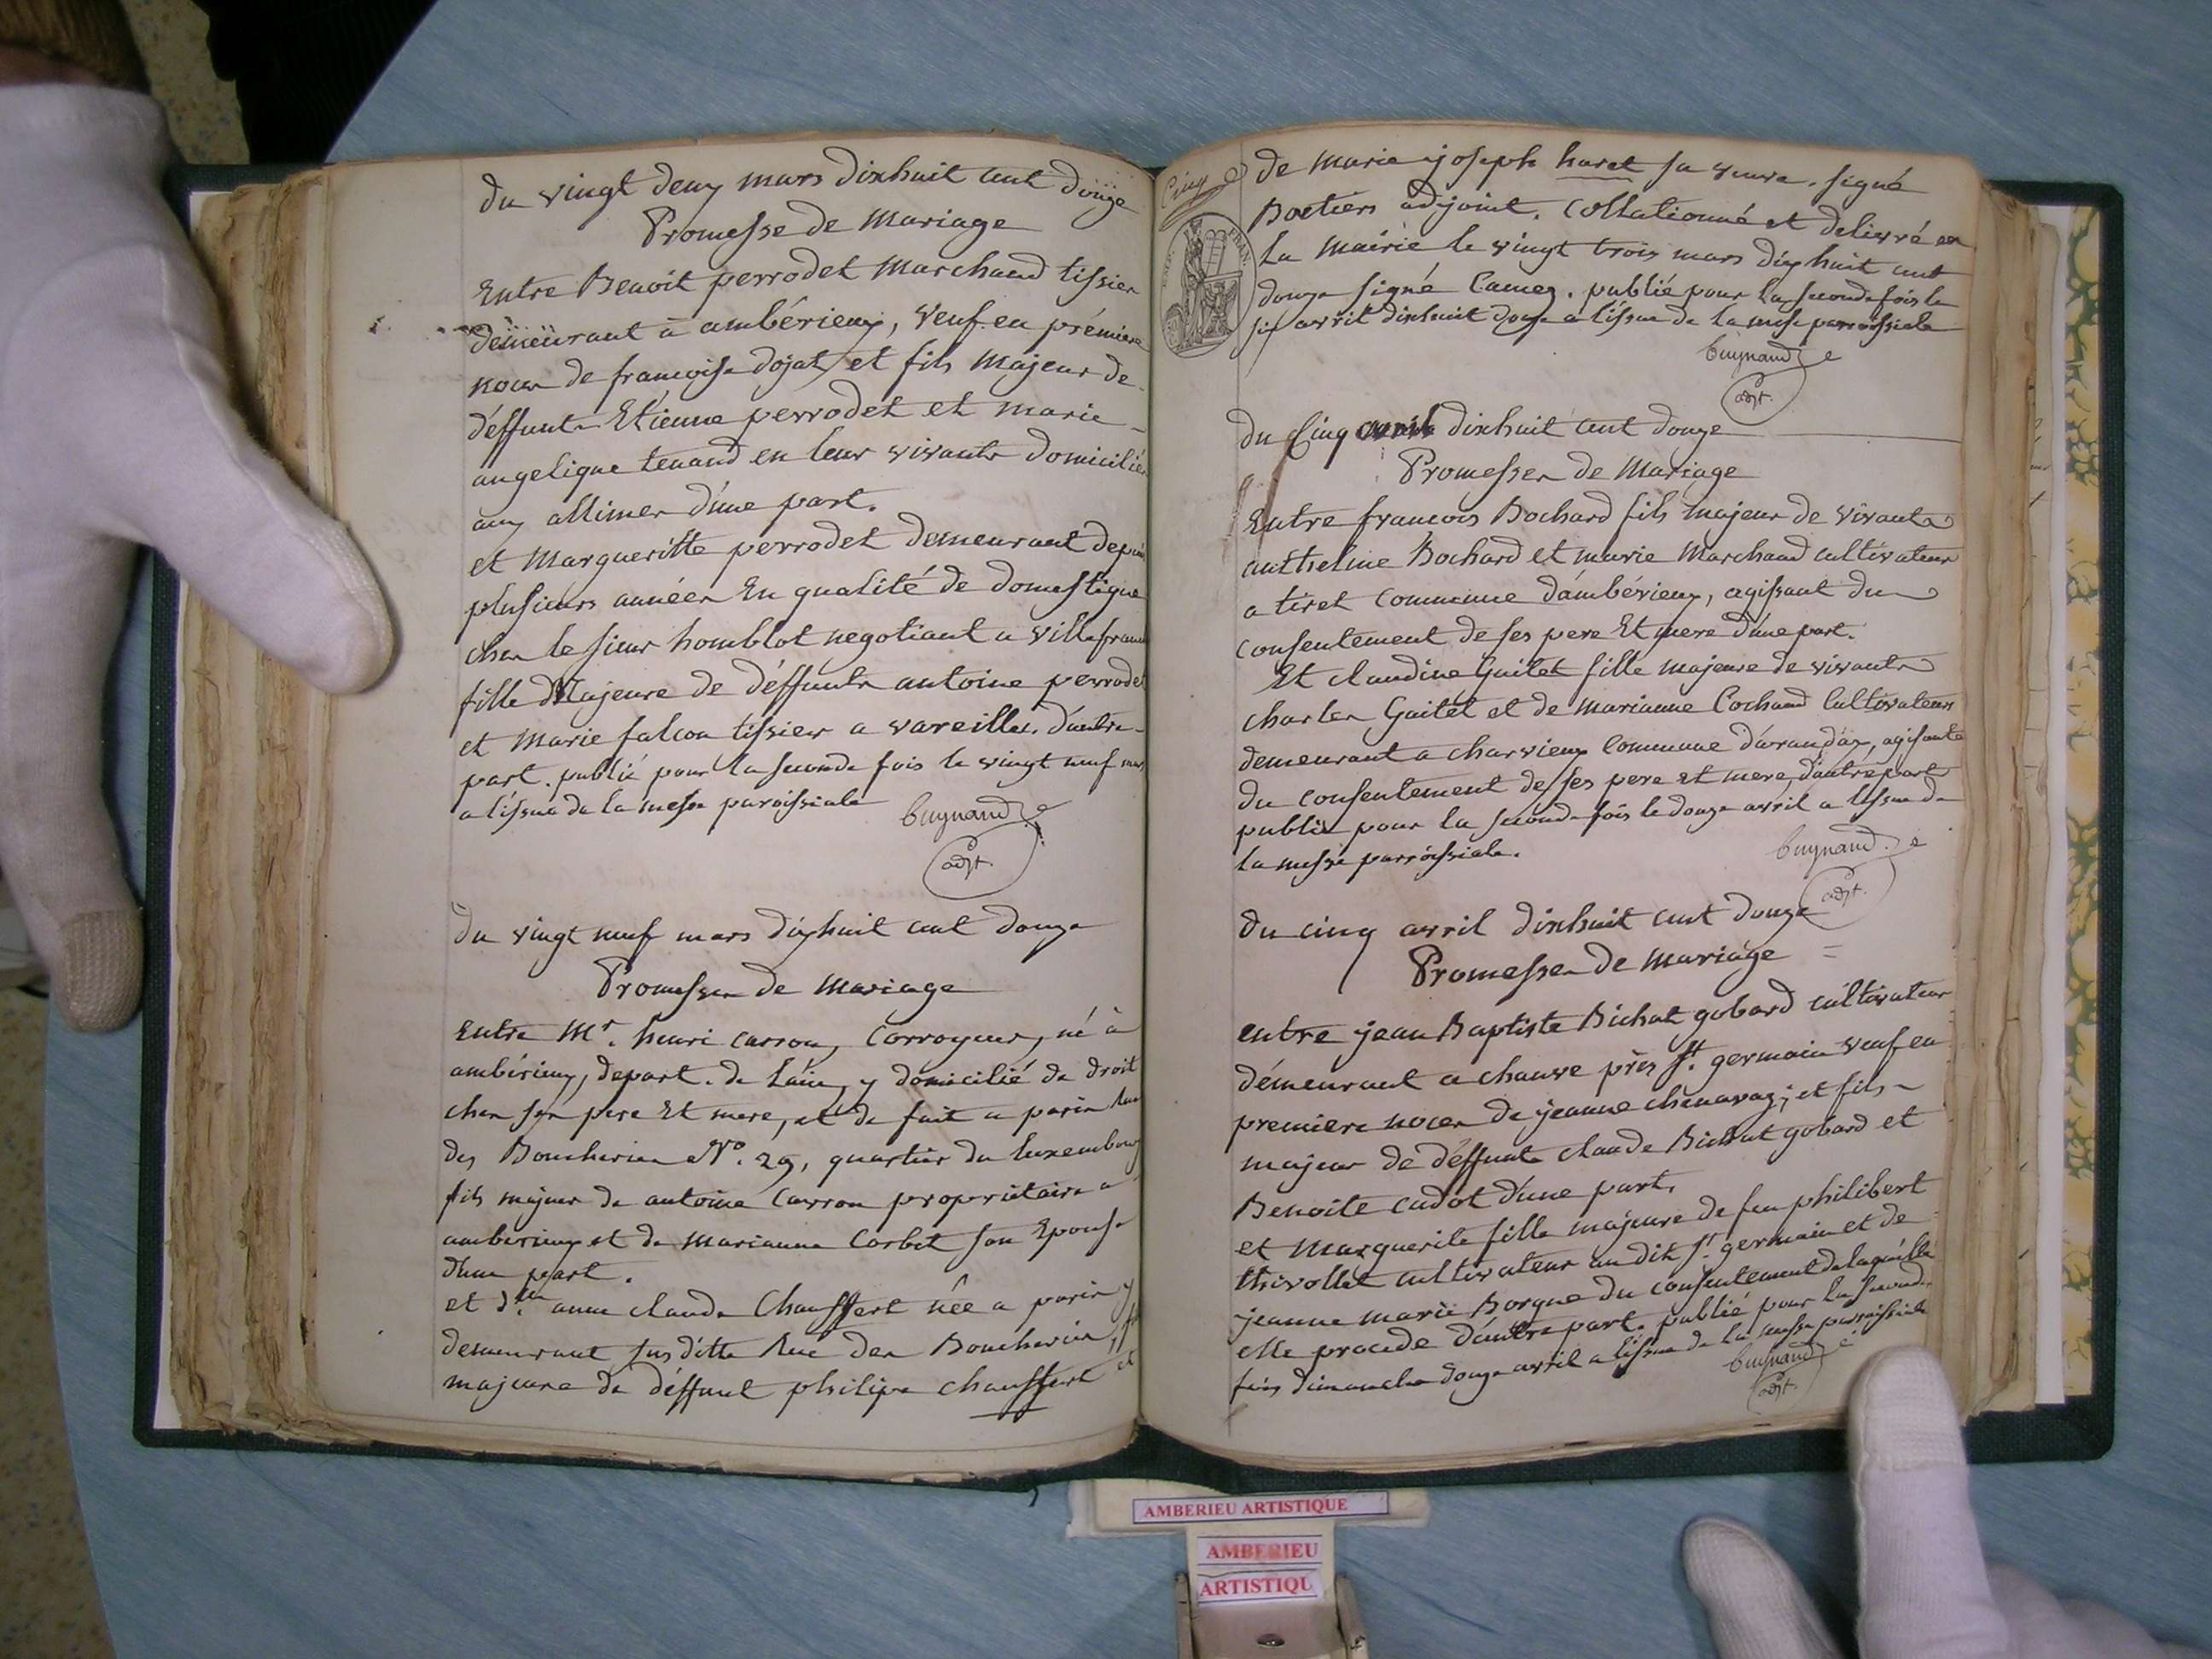 du vingt deux mars dixhuit cent douze
Promesse de Mariage
Entre Benoit perrodet Marchand tissier
demeurant à ambérieux, veuf en prémiere
noces de francoise dojat, et fils Majeur de
déffunts Etienne perrodet et marie
angelique tenand en leur vivants domiciliés
aux allimes d'une part.
et Margueritte perrodet demeurant depuis
plusieurs années En qualité de domestique
chez le sieur homblot negotiant a villefranche
fille Majeure de déffunts antoine perrodet
et Marie falcon tissier a vareilles. d'autre
part. publié pour la seconde fois le vingt neuf mars
a l'issue de la messe paroissiale
buynand
adjt.
du vingt neuf mars dixhuit cent douze
Promesse de Mariage
Entre Mr. henri carron, Corroyeur, né à
ambérieux, depart. de l'ain, y domicilié de droit
chez ses pere Et mere, et de fait a paris rue
des Boucheries No. 29, quartier du luxembourg
fils majeur de antoine Carron propriétaire a
ambérieux et de marianne Corbet son Epouse
d'une part.
et dlle anne claude Chauffert née a paris y
demeurant susditte Rue des Boucheries, fille
majeure de déffunt philipe chauffert et
Cinq
EMP. FRAN.
de marie joseph huret sa veuve. signé
Boetiers adjoint. Collationné et delivré en
la mairie le vingt trois mars dix huit cent
douze signé Camez. publié pour la seconde fois le
six avril dixhuit douze a l'issue de la messe parroissiale
buynand
adjt.
du Cinq avril dixhuit cent douze
Promesses de Mariage
Entre francois Bochard fils majeur de vivants
anthelme Bochard et marie Marchand cultivateurs
a tiret commune d'ambérieux, agissant du
consentement de ses pere Et mere d'une part.
Et claudine Guitet fille majeure de vivants
charles Gaitet et de marianne Cochand Cultivateurs
demeurant a charvieux Commune d'arandas, agissante
du consentement de ses pere et mere, d'autre part
publié pour la seconde fois le douze avril a l'issue de
la messe parroissiale.
buynand
adjt.
du cinq avril dixhuit cent douze
Promesses de Mariage
entre jean Baptiste Bichat gobard cultivateur
démeurant a chauve près St. germain veuf en
premiere noces de jeanne chenavaz; et fils
majeur de déffunts claude Bichat gobard et
Benoite cadot d'une part,
et Marguerite fille majeure de feu philibert
thivollet cultivateur au dit St. germain et de
jeanne marie Borgne du consentement de laquelle
elle procede d'autre part. publié pour la seconde
fois dimanche douze avril a l'issue de la messe parroissiale
buynand
adjt.
AMBERIEU ARTISTIQUE
AMBERIEU
ARTISTIQU